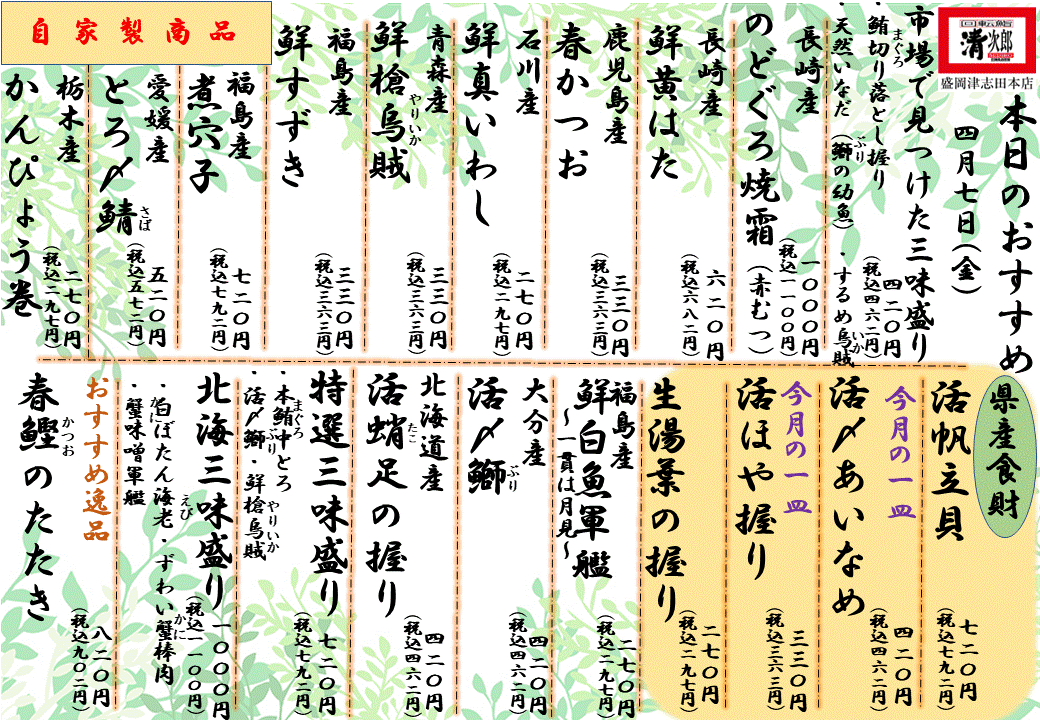 回転鮨
清次郎
盛岡津志田本店
本日のおすすめ
四月七日(金)
市場で見つけた三味盛り
・鮪切り落とし握り
まぐろ
四二〇円
(税込四六二円)
・天然いなだ(鰤の幼魚)・するめ烏賊
ぶり
いか
長崎産
一〇〇〇円
(税込一一〇〇円)
のどぐろ焼霜(赤むつ)
長崎産
六二〇円
(税込六八二円)
鮮黄はた
鹿児島産
三三〇円
(税込三六三円)
春かつお
石川産
二七〇円
(税込二九七円)
鮮真いわし
青森産
三三〇円
(税込三六三円)
鮮槍烏賊
やりいか
福島産
三三〇円
(税込三六三円)
鮮すずき
自家製商品
福島産
七二〇円
(税込七九二円)
煮穴子
愛媛産
五二〇円
(税込五七二円)
とろ〆鯖
さば
栃木産
二七〇円
(税込二九七円)
かんぴょう巻
県産食財
活帆立貝
七二〇円
(税込七九二円)
今月の一皿
活〆あいなめ
四二〇円
(税込四六二円)
今月の一皿
活ほや握り
三三〇円
(税込三六三円)
生湯葉の握り
二七〇円
(税込二九七円)
福島産
鮮白魚軍艦
~一貫は月見~
二七〇円
(税込二九七円)
大分産
活〆鰤
ぶり
四二〇円
(税込四六二円)
北海道産
活蛸足の握り
たこ
四二〇円
(税込四六二円)
特選三味盛り
・本鮪中とろ
まぐろ
・活〆鰤・鮮槍烏賊
ぶり
やりいか
七二〇円
(税込七九二円)
北海三味盛り
一〇〇〇円
(税込一一〇〇円)
・白ぼたん海老・ずわい蟹棒肉
えび
かに
・蟹味噌軍艦
かに
おすすめ逸品
春鰹のたたき
かつお
八二〇円
(税込九〇二円)